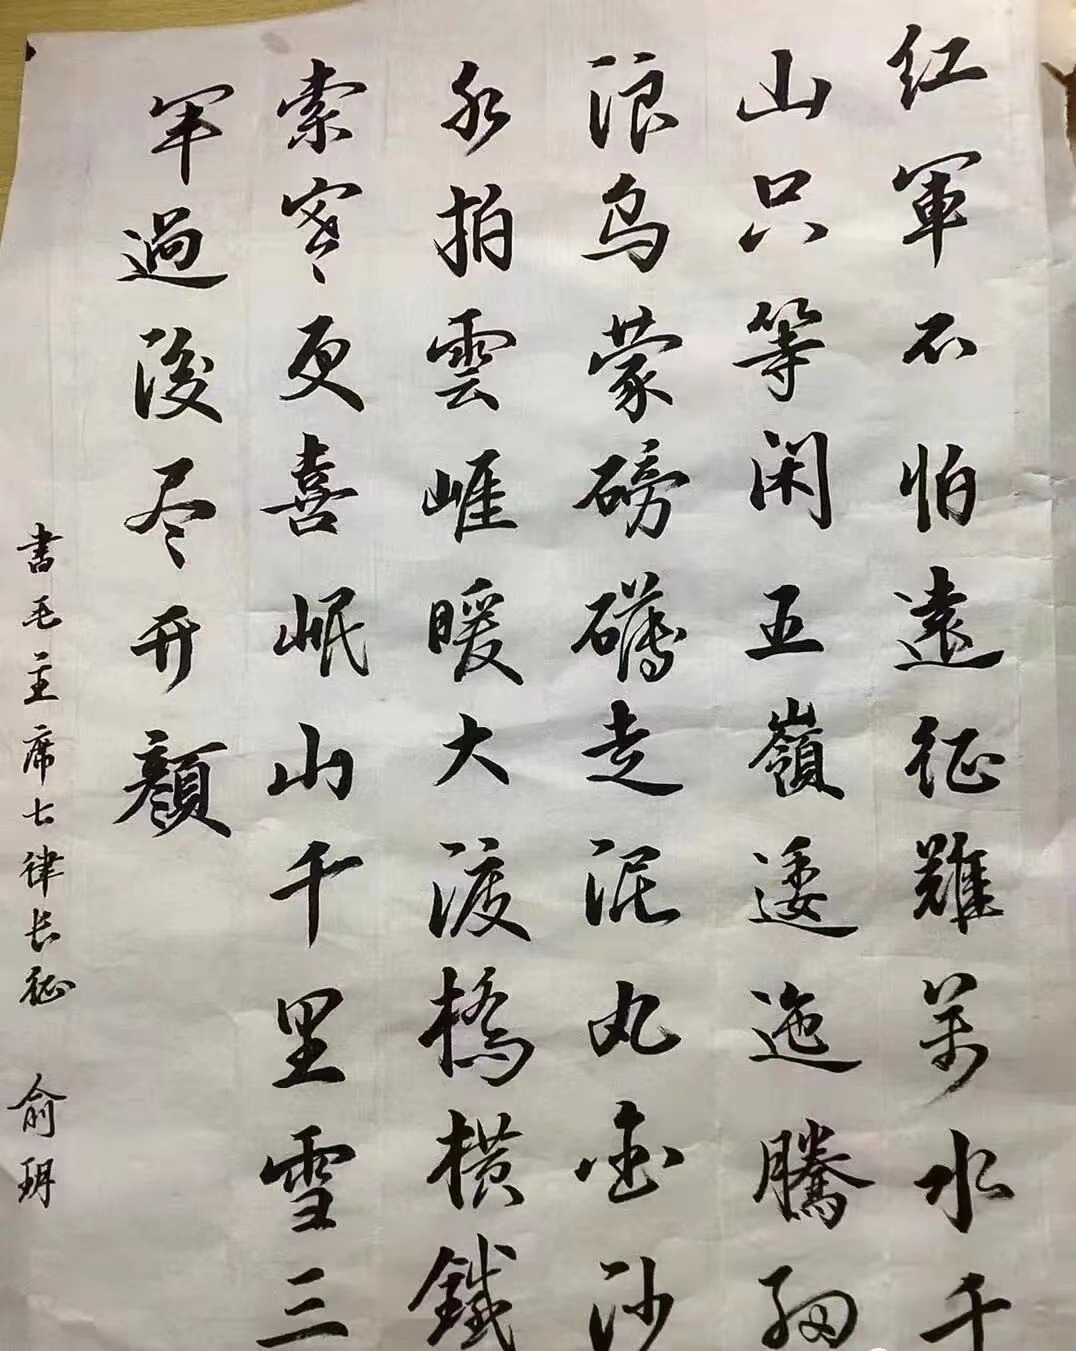 红軍不怕遠征難萬水千
山只等闲五嶺逶迤騰細
浪乌蒙磅礴走泥丸金沙
水拍雲崖暖大渡橋横鐵
索寒更喜岷山千里雪三
军過後尽开顔
書毛主席七律长征 俞玥